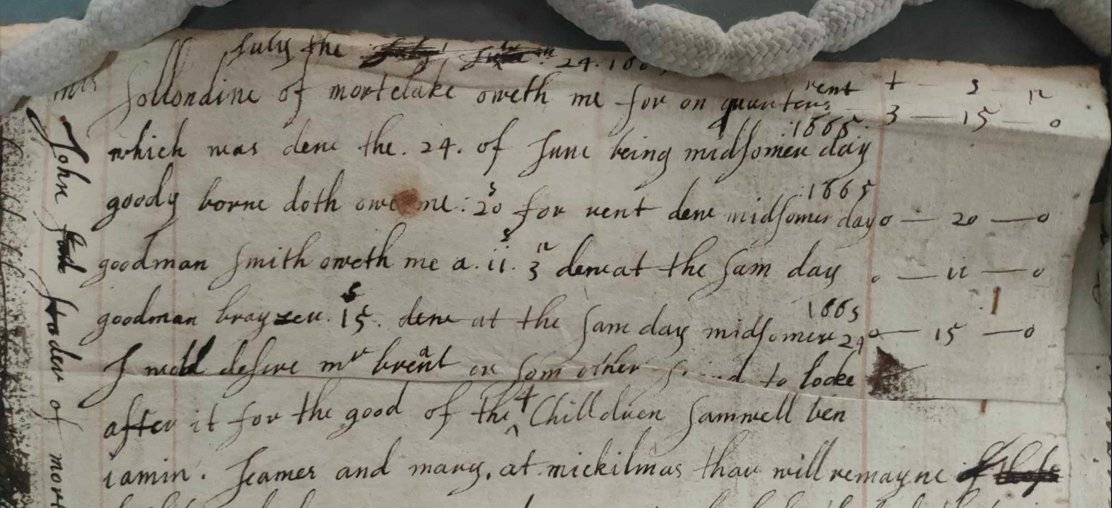 July the 24. 166
mrs follondine of mortclake oweth me for on quarters rent 3 — 15 — 0
which was dew the. 24. of June being midsomer day 1665
goody borne doth owe me: 20 s for rent dew midsomer day 1665 0 — 20 — 0
goodman smith oweth me a. 11. s 3 dew at the sam day 0 — 11 — 0
goodman brayzeu. 15 s. dew at the same day midsomer 24 1665 0 — 15 — 0
I wold desire mr brent or som other to looke
after it for the good of the 4 Chilldren Samwell ben
iamin. Jeames and mary. at mickilmas thar will remayne
John of mort